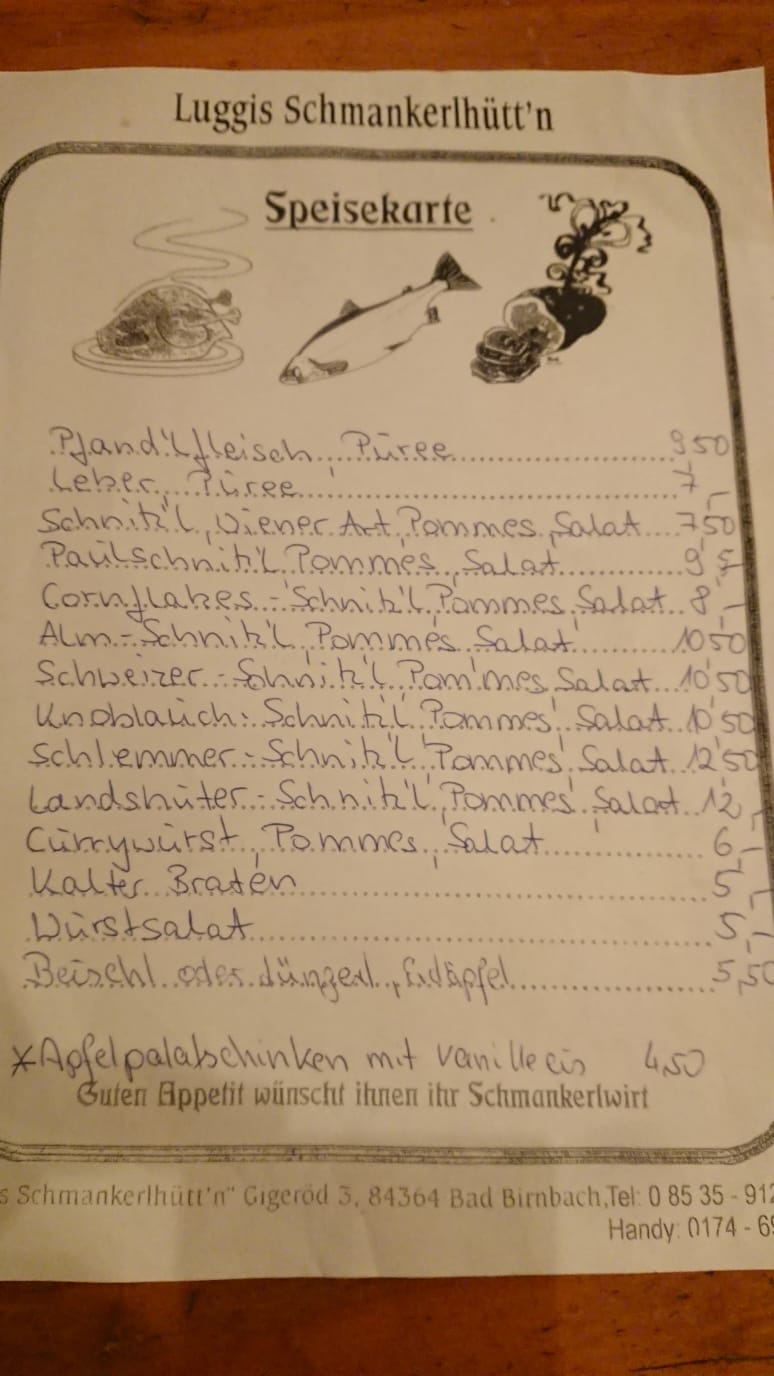 Luggis Schmankerlhütt'n
Speisekarte
Pfand'lfleisch, Püree 9,50
Leber, Püree 7,-
Schnitz'l, Wiener Art, Pommes, Salat 7,50
Paulschnitz'l, Pommes, Salat 9,-
Cornflakes-Schnitz'l, Pommes, Salat 8,-
Alm-Schnitz'l, Pommes, Salat 10,50
Schweizer-Schnitz'l, Pommes, Salat 10,50
Knoblauch-Schnitz'l, Pommes, Salat 10,50
Schlemmer-Schnitz'l, Pommes, Salat 12,50
Landshuter-Schnitz'l, Pommes, Salat 12,-
Currywurst, Pommes, Salat 6,-
Kalter Braten 5,-
Wurstsalat 5,-
Beischl oder Züngerl, Erdäpfel 5,50
*Apfelpalatschinken mit Vanilleeis 4,50
Guten Appetit wünscht ihnen ihr Schmankerlwirt
s Schmankerlhütt'n" Gigeröd 3, 84364 Bad Birnbach, Tel: 0 85 35 - 912
Handy: 0174 - 69